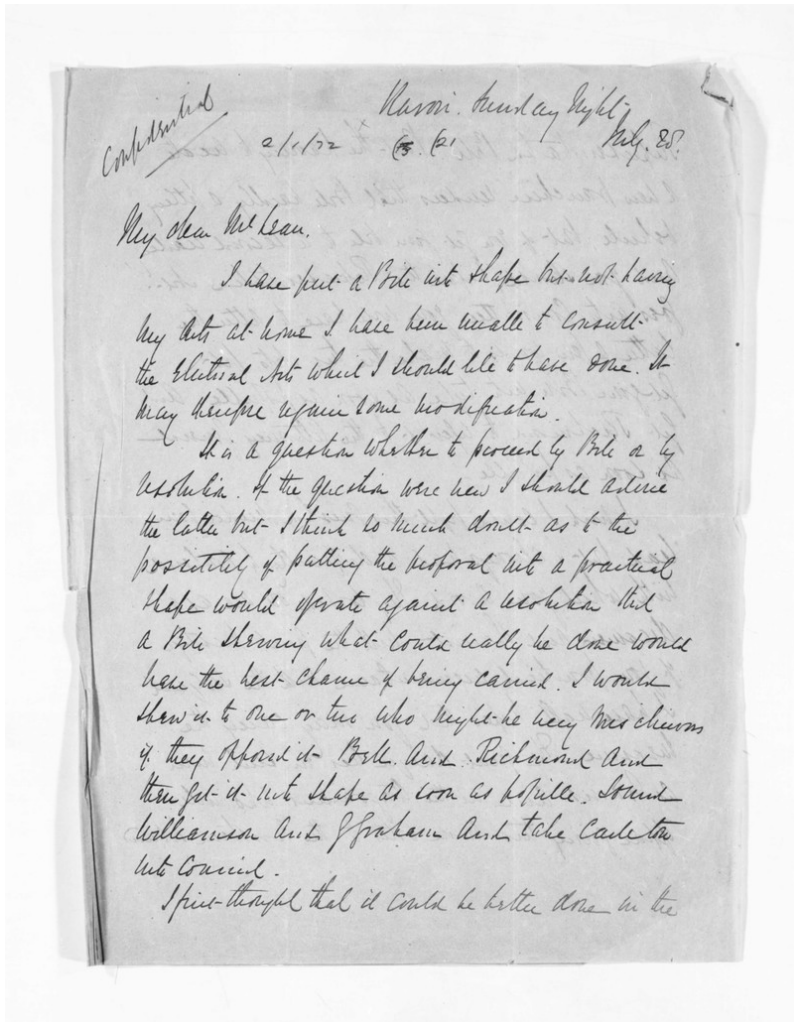 Confidential
Karori. Sunday Night
July. 28.
2/1/72
My dear McLean.
I have put a Bill into shape but not having
my Acts at home I have been unable to consult
the Electoral Acts which I should like to have done. It
may therefore require some modification.
It is a question whether to proceed by Bill or by
resolution. If the question were new I should advise
the latter but I think so much doubt as to the
possibility of putting the proposal into a practical
shape would operate against a resolution that
a Bill shewing what could really be done would
have the best chance of being carried. I would
shew it to one or two who might be very mischievous
if they opposed it Bell. And Richmond And
then get it into shape as soon as possible. Sound
Williamson And G Graham And take Carleton
into Council.
I first thought that it could be better done in the